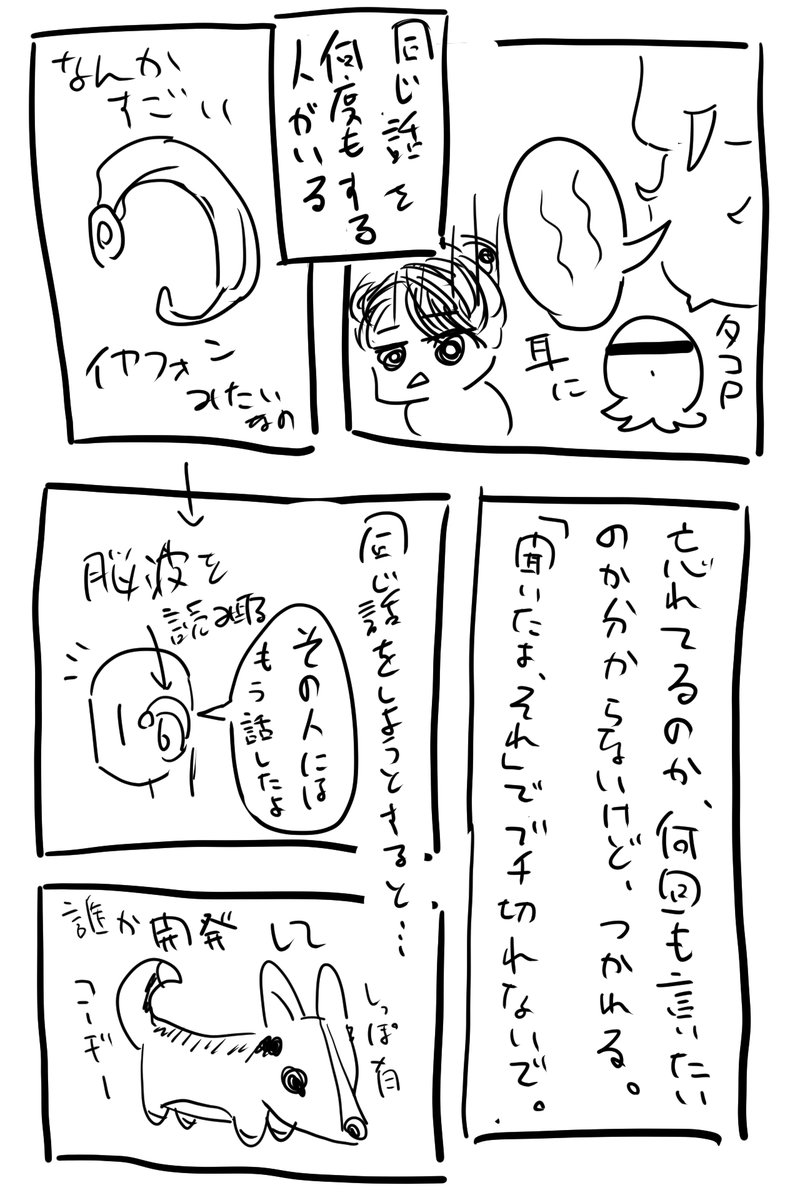 同じ話を
何度もする
人がいる
タコP
耳に
忘れてるのか、何回も言いたい
のか分からないけど、つかれる。
「聞いたよ、それ」でブチ切れないで。
なんか
すごい
イヤフォン
みたいなの
同じ話をしようとすると…
脳波を
読み取る
その人には
もう話したよ
誰か開発して
しっぽ有
コーギー